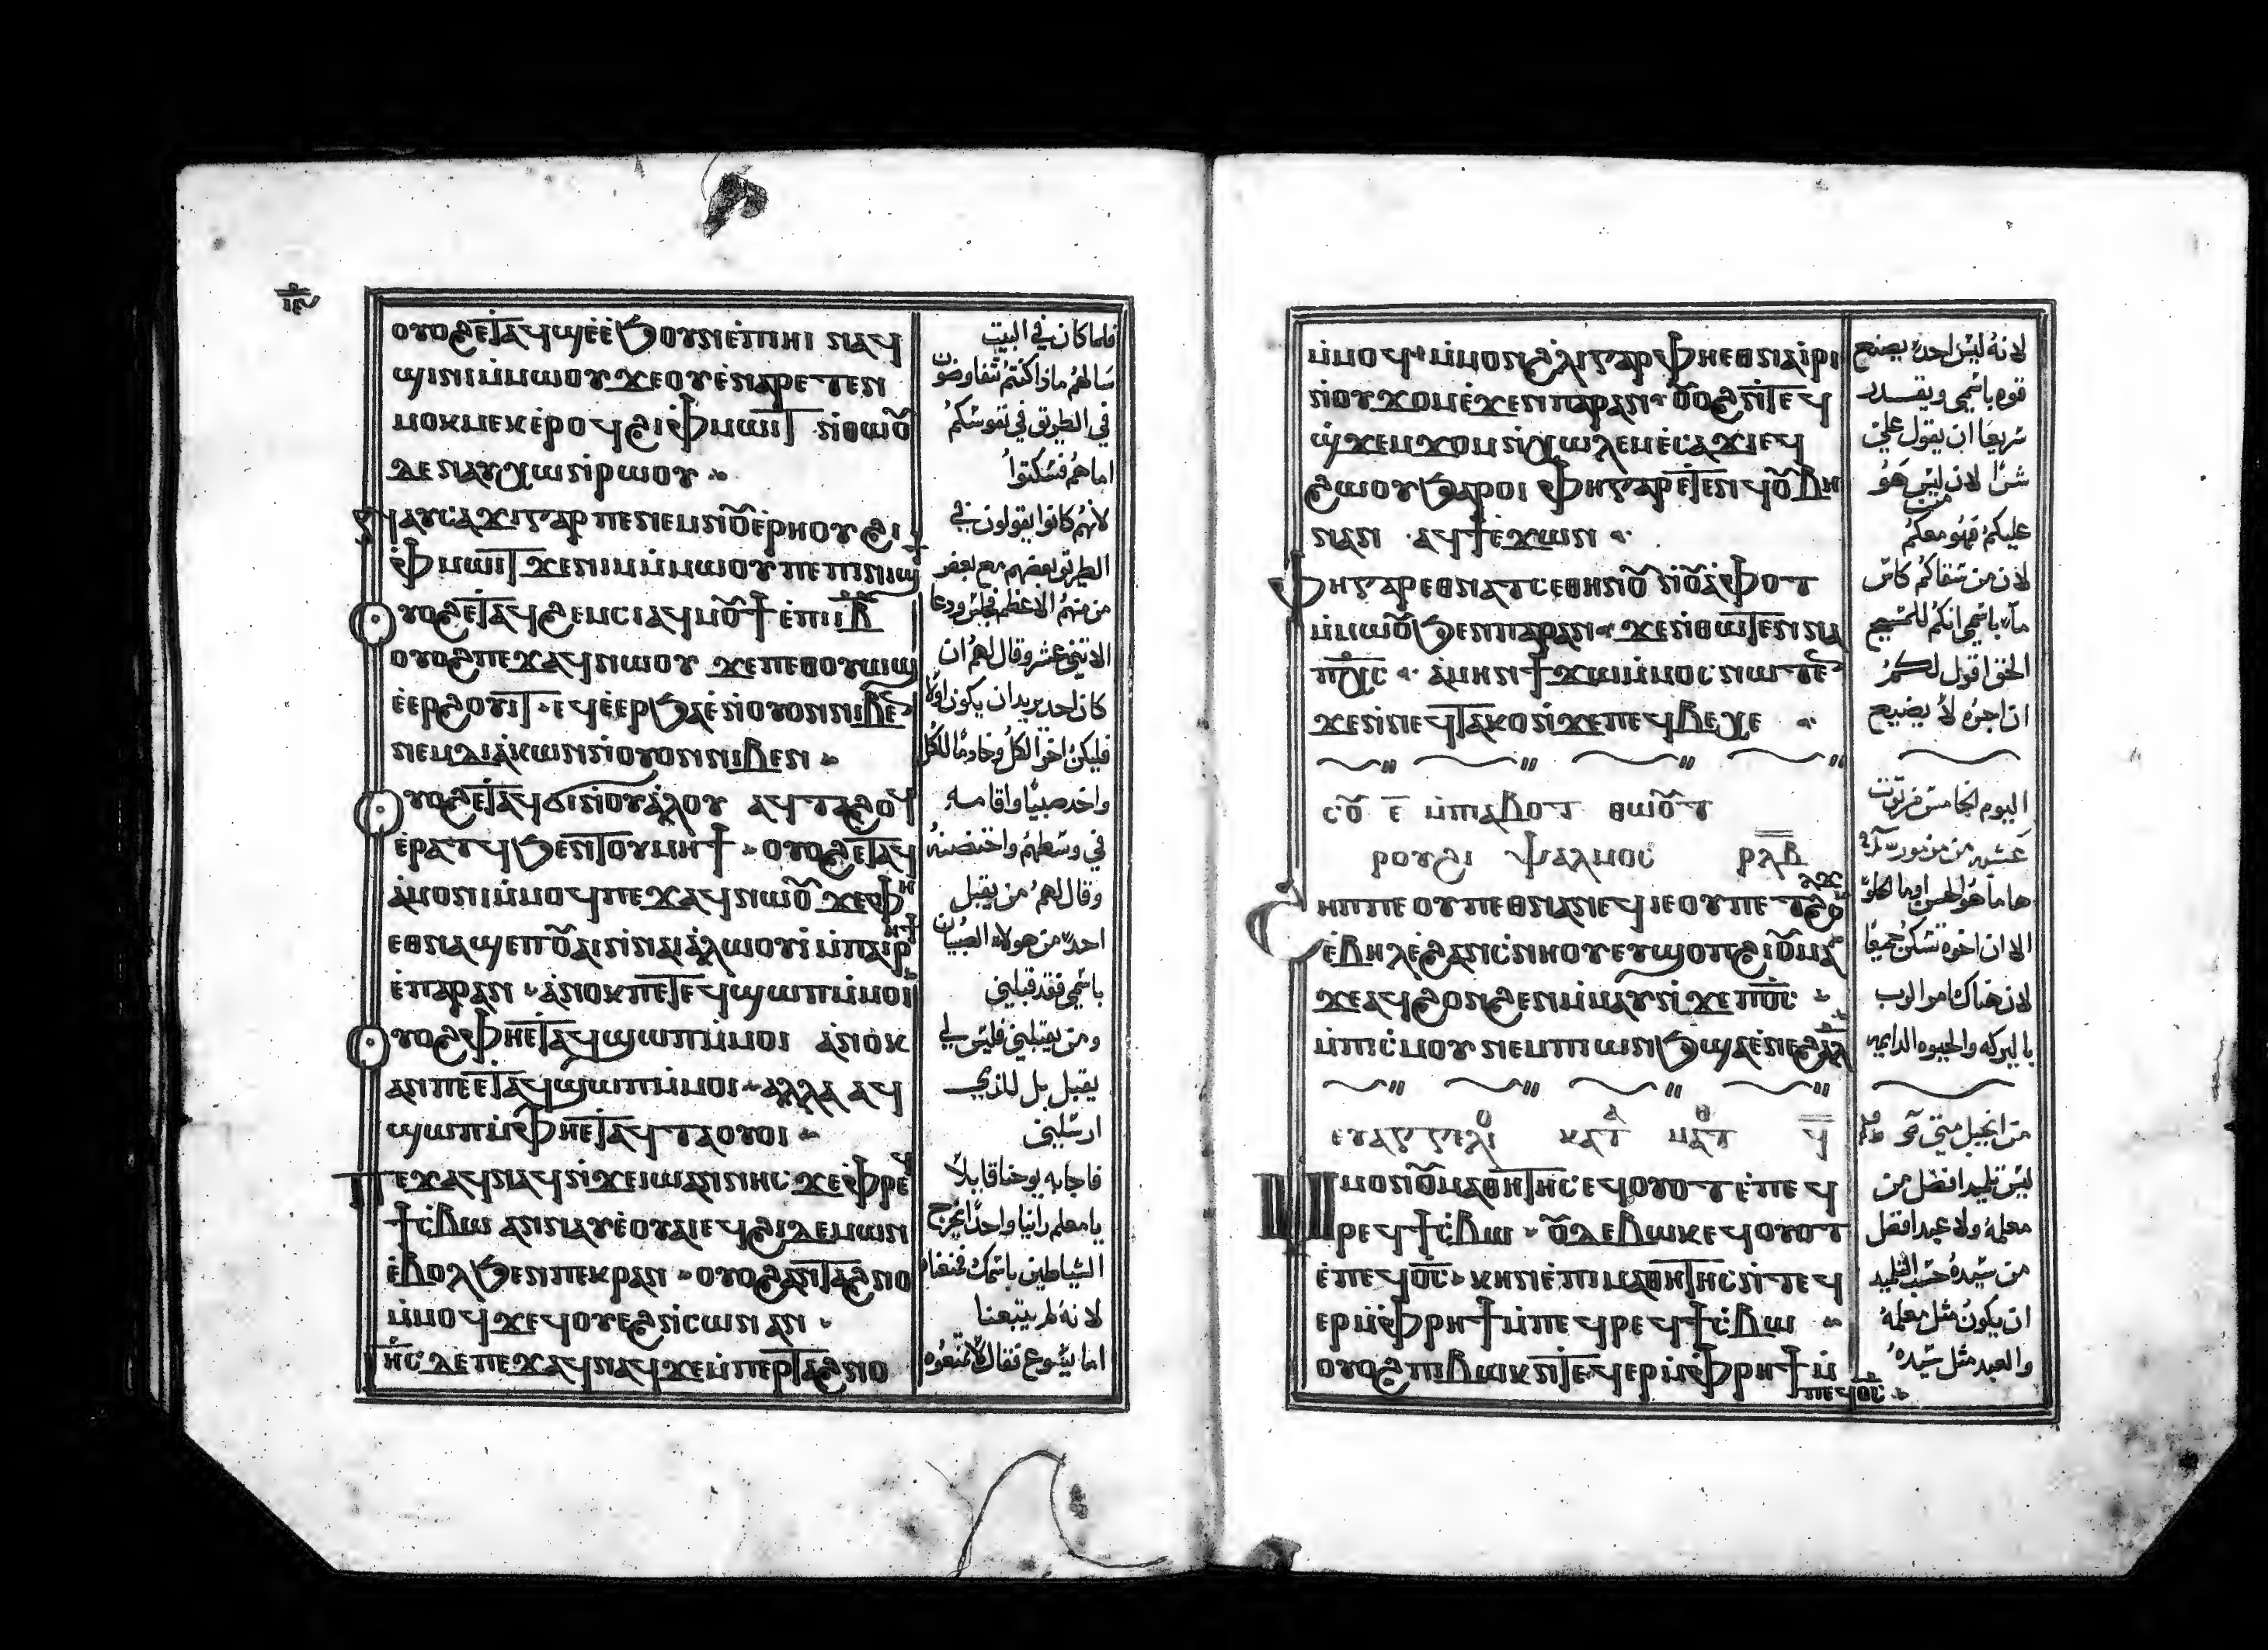 ⲟⲩⲟϩ ⲉⲧⲁϥϣⲉ ⲉϧⲟⲩⲛ ⲉⲡⲓⲏⲓ ⲛⲁϥ
ϣⲓⲛⲓ ⲙⲙⲱⲟⲩ ϫⲉ ⲟⲩ ⲉⲛⲁⲣⲉⲧⲉⲛ
ⲙⲟⲕⲙⲉⲕ ⲉⲣⲟϥ ϩⲓ ⲫⲙⲱⲓⲧ ⲛⲑⲱⲟ̅
ⲇⲉ ⲛⲁⲩⲭⲱ ⲛⲣⲱⲟⲩ
ⲛⲁⲩⲥⲁϫⲓ ⲅⲁⲣ ⲡⲉ ⲛⲉⲙ ⲛⲟ̅ⲉⲣⲏⲟⲩ ϩⲓ
ⲫⲙⲱⲓⲧ ϫⲉ ⲛⲓⲙ ⲙⲙⲱⲟⲩ ⲡⲉ ⲡⲓⲛⲓϣϯ
ⲟⲩⲟϩ ⲉⲧⲁϥϩⲉⲙⲥⲓ ⲁϥⲙⲟ̅ϯ ⲉⲡⲓⲓ̅ⲃ̅
ⲟⲩⲟϩ ⲡⲉϫⲁϥ ⲛⲱⲟⲩ ϫⲉ ⲡⲉⲑⲟⲩⲱϣ
ⲉⲉⲣϩⲟⲩⲓⲧ ⲉϥⲉⲉⲣϧⲁⲉ ⲛⲟⲩⲟⲛ ⲛⲓⲃⲉ̅
ⲛⲉⲙ ⲇⲓⲁⲕⲱⲛ ⲛⲟⲩⲟⲛ ⲛⲓⲃⲉⲛ
ⲟⲩⲟϩ ⲉⲧⲁϥϭⲓ ⲛⲟⲩⲁⲗⲟⲩ ⲁϥⲧⲁϩⲟϥ
ⲉⲣⲁⲧϥ ϧⲉⲛ ⲧⲟⲩⲙⲏϯ ⲟⲩⲟϩ ⲉⲧⲁϥ
ⲁⲙⲟⲛⲓ ⲙⲙⲟϥ ⲡⲉϫⲁϥ ⲛⲱⲟ̅ ϫⲉ ⲫⲏ
ⲉⲑⲛⲁϣⲉⲡ ⲟ̅ⲁⲓ ⲛⲛⲁⲓⲁⲗⲱⲟⲩⲓ ⲙⲡⲁⲓⲣⲏϯ
ⲉⲡⲁⲣⲁⲛ ⲁⲛⲟⲕ ⲡⲉⲧⲉϥϣⲱⲡ ⲙⲙⲟⲓ
ⲟⲩⲟϩ ⲫⲏ ⲉⲧⲁϥϣⲱⲡ ⲙⲙⲟⲓ ⲁⲛⲟⲕ
ⲁⲛ ⲡⲉ ⲉⲧⲁϥϣⲱⲡ ⲙⲙⲟⲓ ⲁⲗⲗⲁ ⲁϥ
ϣⲱⲡ ⲙⲫⲏ ⲉⲧⲁϥⲧⲁⲟⲩⲟⲓ
ⲡⲉϫⲁϥ ⲛⲁϥ ⲛϫⲉ ⲓⲱⲁⲛⲛⲏⲥ ϫⲉ ⲫⲣⲉϥ
ϯⲥⲃⲱ ⲁⲛⲛⲁⲩ ⲉⲟⲩⲁⲓ ⲉϥϩⲓ ⲇⲉⲙⲱⲛ
ⲉⲃⲟⲗ ϧⲉⲛ ⲡⲉⲕⲣⲁⲛ ⲟⲩⲟϩ ⲁⲛⲧⲁϩⲛⲟ
ⲙⲙⲟϥ ϫⲉ ϥⲟⲩⲉϩ ⲛⲥⲱⲛ ⲁⲛ
ⲓⲏⲥ ⲇⲉ ⲡⲉϫⲁϥ ⲛⲁϥ ϫⲉ ⲙⲡⲉⲣⲧⲁϩⲛⲟ
فلما كان في البيت
سالهم ماذا كنتم تتفاوضون
في الطريق في نفوسكم
اما هم فسكتوا
لانهم كانوا يقولون في
الطريق بعضهم مع بعض
من منهم الاعظم فجلس ودعا
الاثني عشر وقال لهم ان
كان احد يريد ان يكون اولا
فليكن اخر الكل وخادما للكل
واخد صبيا واقامه
في وسطهم واحتضنه
وقال لهم من يقبل
احد من هولاء الصبيان
باسمي فقد قبلني
ومن يقبلني فليس لي
يقبل بل للذي
ارسلني
فاجابه يوحنا قايلا
يامعلم راينا واحدا يخرج
الشياطين باسمك فمنعناه
لانه لم يتبعنا
اما يسوع فقال لا تمنعوه
ⲙⲙⲟϥ ⲙⲙⲟⲛ ϩⲗⲓ ⲅⲁⲣ ⲫⲏ ⲉⲑⲛⲁⲓⲣⲓ
ⲛⲟⲩϫⲟⲙ ⲉϫⲉⲛ ⲡⲁⲣⲁⲛ ⲟ̅ⲟϩ ⲛⲧⲉϥ
ϣϫⲉⲙϫⲟⲙ ⲛⲭⲱⲗⲉⲙ ⲉⲥⲁϫⲓ ⲉϥ
ϩⲱⲟⲩ ϧⲁⲣⲟⲓ ⲫⲏ ⲅⲁⲣ ⲉⲧⲉⲛϥⲟ̅ⲃⲏ
ⲛⲁⲛ ⲁϥϯ ⲉϫⲱⲛ
ⲫⲏ ⲅⲁⲣ ⲉⲑⲛⲁⲧⲥⲉ ⲑⲏⲛⲟ̅ ⲛⲟ̅ⲁⲫⲟⲧ
ⲙⲙⲱⲟ̅ ϧⲉⲛ ⲡⲁⲣⲁⲛ ϫⲉ ⲛⲑⲱⲧⲉⲛ ⲛⲁ
ⲡⲭⲥ ⲁⲙⲏⲛ ϯϫⲱ ⲙⲙⲟⲥ ⲛⲱⲧⲉ̅
ϫⲉ ⲛⲛⲉϥⲧⲁⲕⲟ ⲛϫⲉ ⲡⲉϥⲃⲉⲭⲉ
ⲥⲟ̅ ⲉ̅ ⲙⲡⲁⲃⲟⲧ ⲑⲱⲟ̅ⲧ
ⲣⲟⲩϩⲓ ⲯⲁⲗⲙⲟⲥ ⲣⲗⲃ
ϩⲏⲡⲡⲉ ⲟⲩ ⲡⲉⲑⲛⲁⲛⲉϥ ⲓⲉ ⲟⲩ ⲡⲉⲧϩⲟⲗϫ
ⲉⲃⲏⲗ ⲉϩⲁⲛⲥⲛⲏⲟⲩ ⲉⲩϣⲟⲡ ϩⲓ ⲟ̅ⲙⲁ
ϫⲉ ⲁϥϩⲟⲛϩⲉⲛ ⲙⲙⲁⲩ ⲛϫⲉ ⲡⲟ̅ⲥ̅
ⲙⲡⲓⲥⲙⲟⲩ ⲛⲉⲙ ⲡⲓⲱⲛϧ ϣⲁ ⲉⲛⲉϩ
ⲉⲩⲁⲅⲅⲉⲗⲓⲟ ⲕⲁⲧⲁ ⲙⲁⲧⲑ ϥ̅
ⲙⲙⲟⲛ ⲟ̅ⲙⲁⲑⲏⲧⲏⲥ ⲉϥⲟⲩⲟⲧ ⲉⲡⲉϥ
ⲣⲉϥϯⲥⲃⲱ ⲟ̅ⲇⲉ ⲃⲱⲕ ⲉϥⲟⲩⲟⲧ
ⲉⲡⲉϥⲟ̅ⲥ̅ ⲕⲏⲛ ⲉⲡⲓⲙⲁⲑⲏⲧⲏⲥ ⲛⲧⲉϥ
ⲉⲣ ⲙⲫⲣⲏϯ ⲙⲡⲉϥⲣⲉϥϯⲥⲃⲱ
ⲟⲩⲟϩ ⲡⲓⲃⲱⲕ ⲛⲧⲉϥⲉⲣ ⲙⲫⲣⲏϯ ⲙ
ⲡⲉϥⲟ̅ⲥ̅
لانه ليس احد يصنع
قوه باسمي ويقدر
سريعا ان يقول علي
شرا لان ليس هو
عليكم فهو معكم
لان من سقاكم كاس
ماء باسمي انكم للمسيح
الحق اقول لكم
ان اجره لا يضيع
اليوم الخامس من توت
عشيه من مزمور
هاما هو الحسن اوما الحلو
الا ان اخوه تسكن جميعا
لان هناك امر الرب
بالبركه والحيوه الدايمه
من انجيل متى
ليس تلميذ افضل من
معلمه ولا عبد افضل
من سيده حسب التلميد
ان يكون مثل معلمه
والعبد مثل سيده